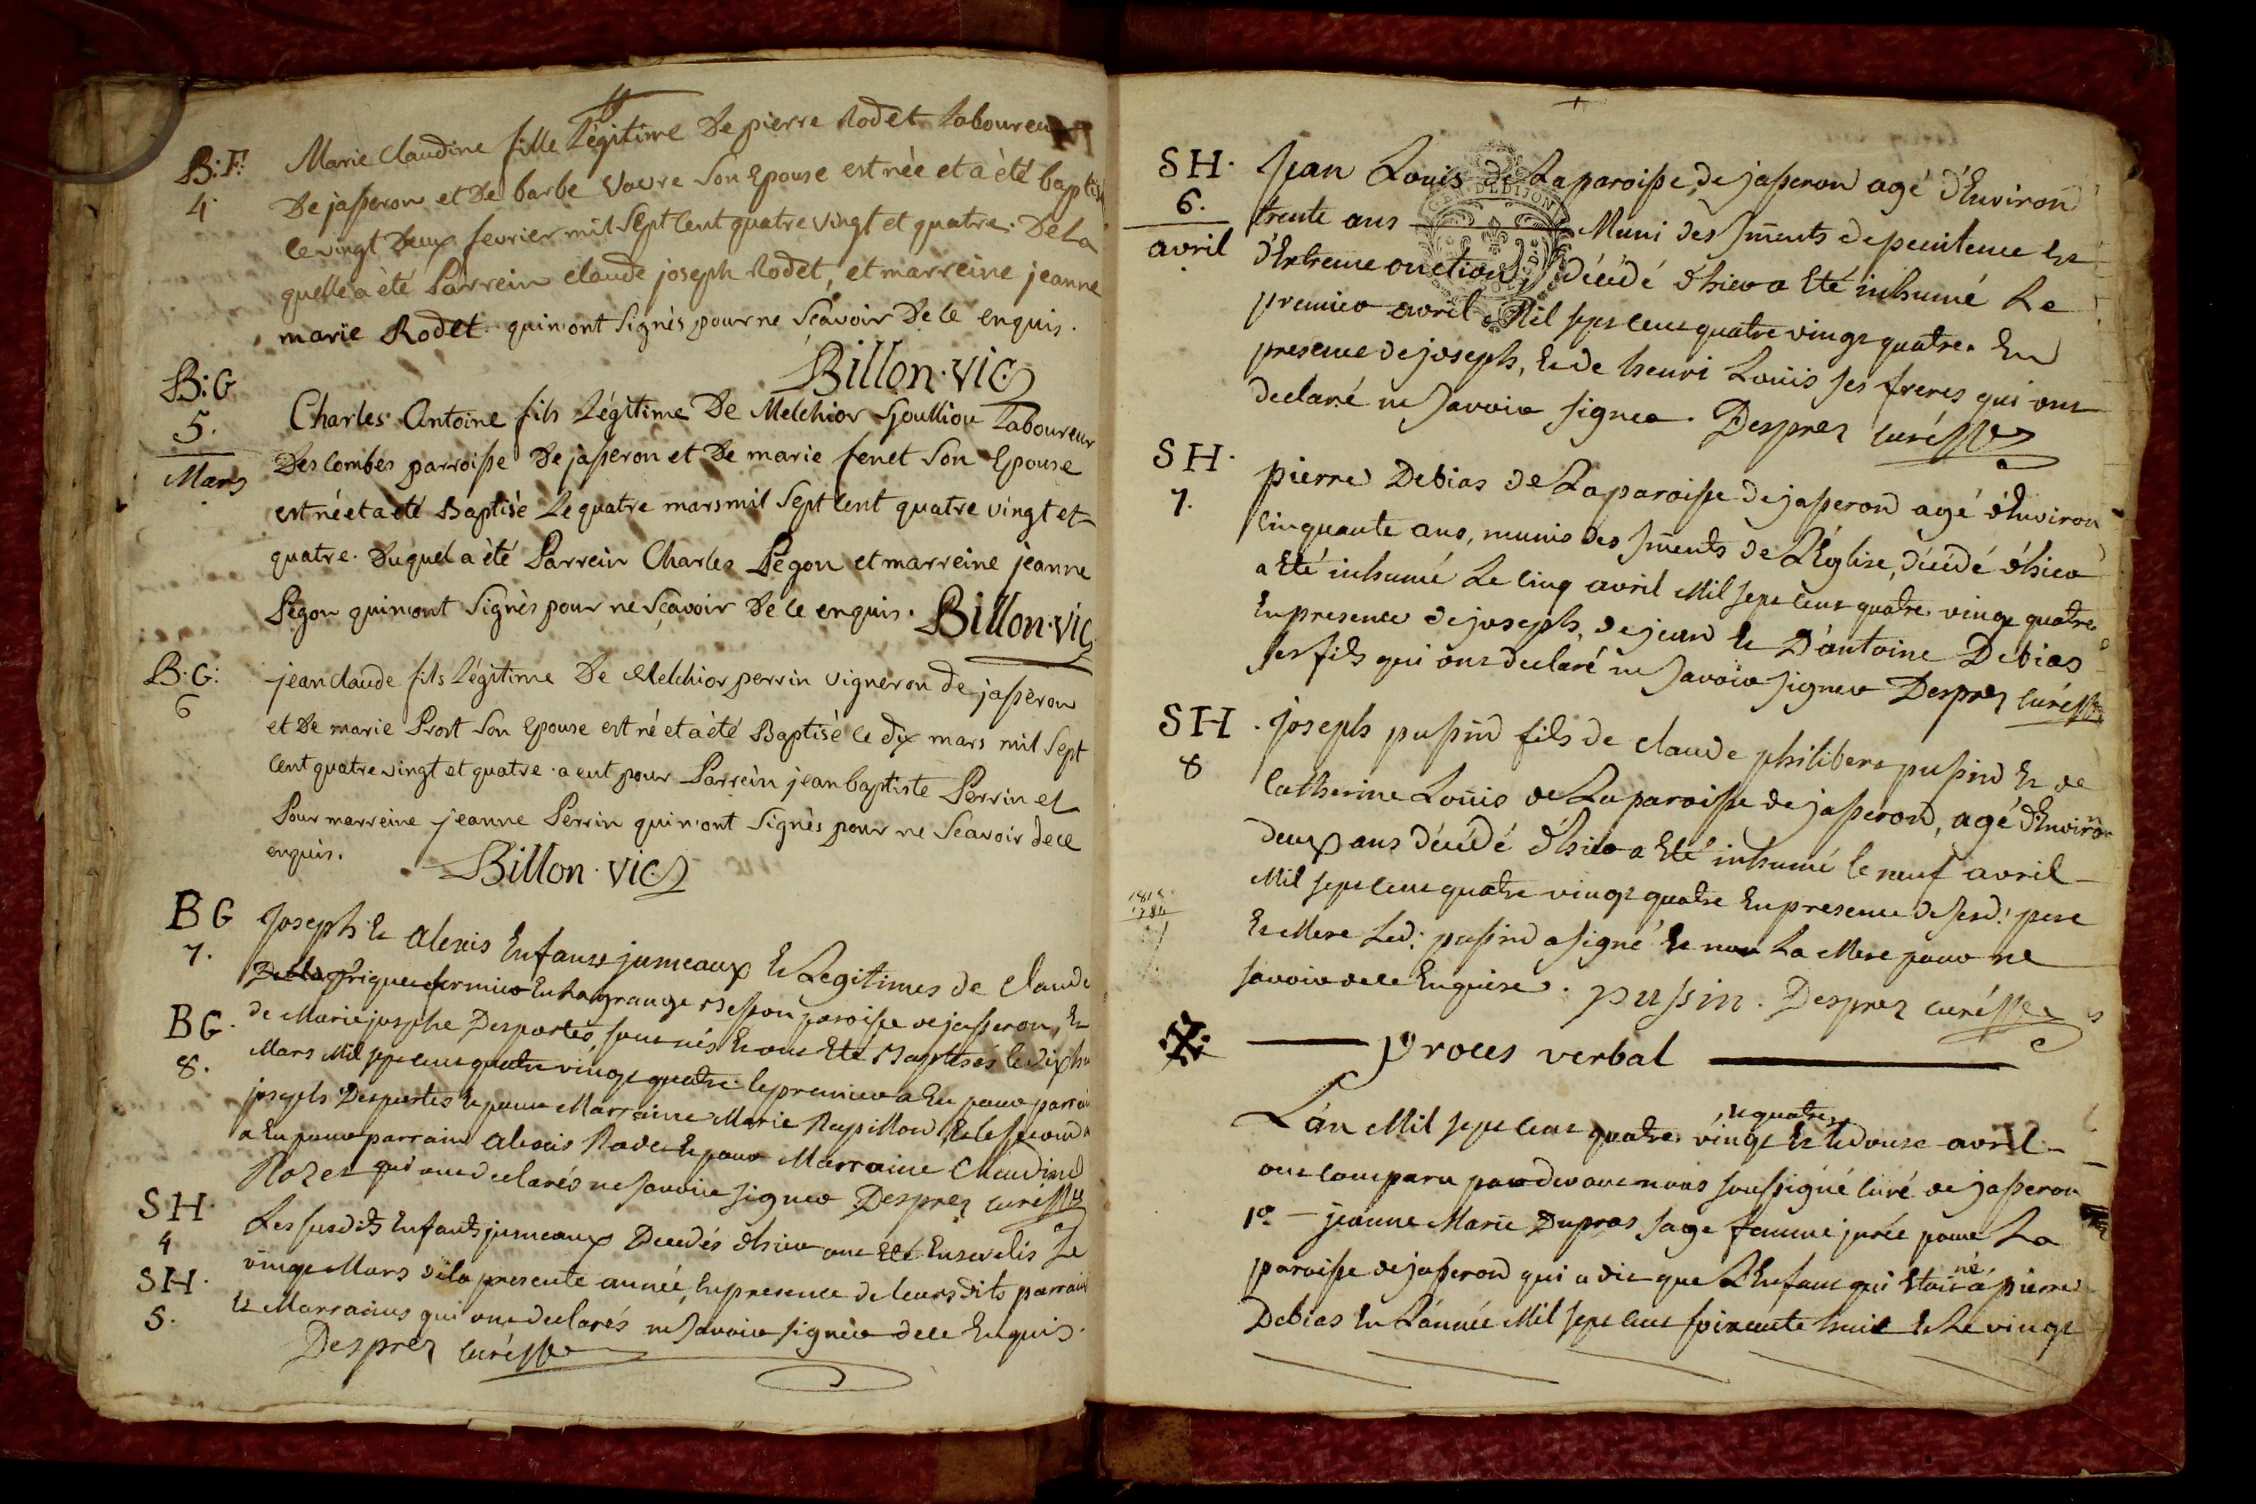 B: F:
4
Marie claudine fille légitime De pierre Rodet laboureur
De jasseron et De barbe Vovre Son Epouse est née et a èté baptisé
le vingt Deux fevrier mil Sept Cent quatre vingt et quatre. De La
quelle a èté Parrein claude joseph Rodet, et marreine jeanne
marie Rodet. qui n'ont Signès pour ne Sçavoir De ce enquis.
Billon. vic.
B: G
5.
Mars
Charles Antoine fils légitime De Melchior Goulliou Laboureur
Des Combes parroisse De jasseron et De marie fenet Son Epouse
est né et a èté Baptisè Le quatre mars mil Sept Cent quatre vingt et
quatre. Duquel a èté Parrein Charles Pegon et marreine jeanne
Pegon qui n'ont Signès pour ne Sçavoir De ce enquis. Billon. vic.
B: G:
6
jean claude fils légitime De Melchior perrin vigneron de jasseron
et De marie Prost Son Epouse est né et a èté Baptisè le dix mars mil Sept
Cent quatre vingt et quatre. a eut pour Parrein jean baptiste Perrin et
Pour marreine jeanne Perrin qui n'ont Signès pour ne Scavoir de ce
enquis.
Billon. vic.
BG
7.
Joseph Et Alexis Enfans jumeaux Et Legitimes de Claude
fermier En La grange paroisse de jasseron, Et
BG.
8.
de Marie josephe Desportes, sont nés Et ont Eté Baptisés le dix
Mars Mil sept cent quatre vingt quatre. le premier a Eu pour parrain
joseph Desportes Et pour Marraine Marie Rapillon Et le second
a Eu pour parrain Alexis Rodet Et pour Marraine Claudine
Rozet qui ont declarés ne savoir signer Desprez curé
SH.
4
Les susdits Enfants jumeaux Decedés d'hier ont Eté Ensevelis Le
vingt Mars de la presente année, En presence de leurs dits parrains
SH.
5.
Et Marraines qui ont declarés ne savoir signer de ce Enquis.
Desprez curé
SH.
6.
avril
Jean Louis de La paroisse de jasseron agé d'Environ
trente ans Muni des sments de penitence Et
d'Extreme onction, décédé d'hier a Eté inhumé Le
premier avril Mil sept cent quatre vingt quatre. En
presence de joseph, Et de henri Louis ses freres qui ont
declaré ne savoir signer. Desprez curé
SH.
7.
pierre Debias de La paroisse de jasseron agé d'Environ
Cinquante ans, munis des sments de L'Eglise, décédé d'hier
a Eté inhumé Le Cinq avril Mil sept cent quatre vingt quatre
En presence de joseph, de jean Et D'antoine Debias
ses fils qui ont declaré ne savoir signer Desprez curé
SH.
8
joseph pussin fils de Claude philibert pussin Et de
Catherine Louis de La paroisse de jasseron, agé d'Environ
deux ans décédé d'hier a Eté inhumé le neuf avril
Mil sept cent quatre vingt quatre En presence de sesd. pere
Et Mere Led. pussin a signé Et non La Mere pour ne
savoir de ce Enquise. pussin. Desprez curé
Proces verbal
L'an Mil sept cent quatre vingt Et quatre Et Le douze avril
ont comparu pardevant nous soussigné curé de jasseron
1º — jeanne Marie Dupras sage femme jurée pour La
paroisse de jasseron qui a dit que L'Enfant qui Etait né a pierre
Debias En L'année Mil sept cent soixante huit Et Le vingt